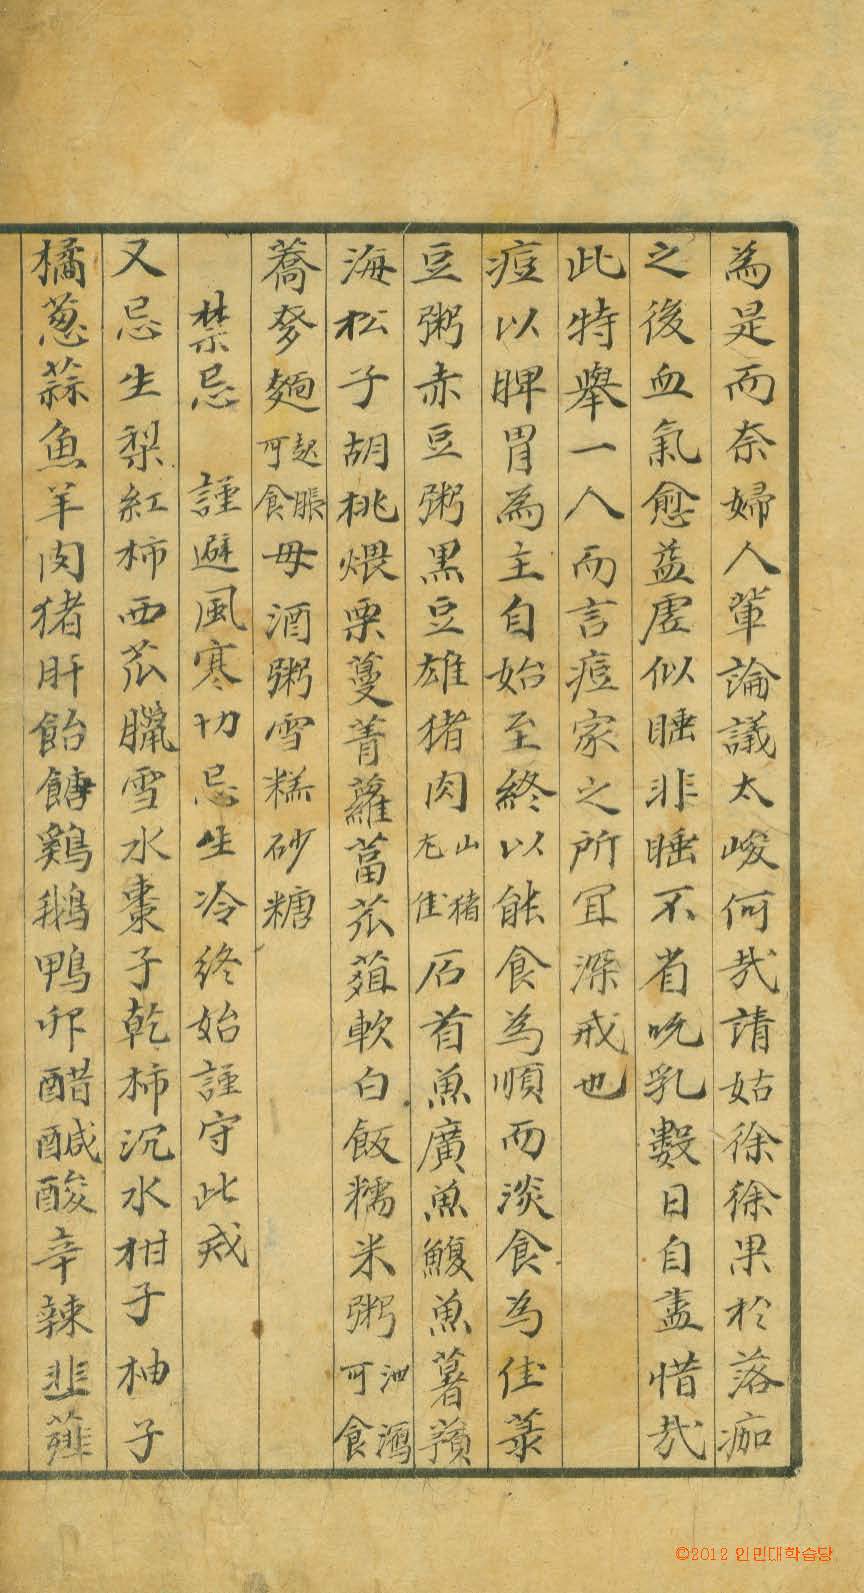 為是而奈婦人輩論議太峻何㢤請姑徐徐果於落痂
之後血氣愈益虛似睡非睡不省吮乳數日自盡惜㢤
此特擧一人而言痘家之所冝深戒也
痘以脾胃為主自始至終以能食為順而淡食為佳菉
豆粥赤豆粥黒豆雄猪肉山猪尢佳石首魚廣魚鰒魚薯蕷
海松子胡桃煨栗蔓菁蘿葍苽葅軟白飯糯米粥泄瀉可食
蕎麥麵起脹可食母酒粥雪糕砂糖
禁忌 謹避風寒切忌生冷終始謹守此戒
又忌生梨紅柿西苽臘雪水棗子乾柿沉水柑子柚子
橘葱蒜魚羊肉猪肝飴餹鷄鵝鴨卵醋醎酸辛辣韭薤
©2012 인민대학습당